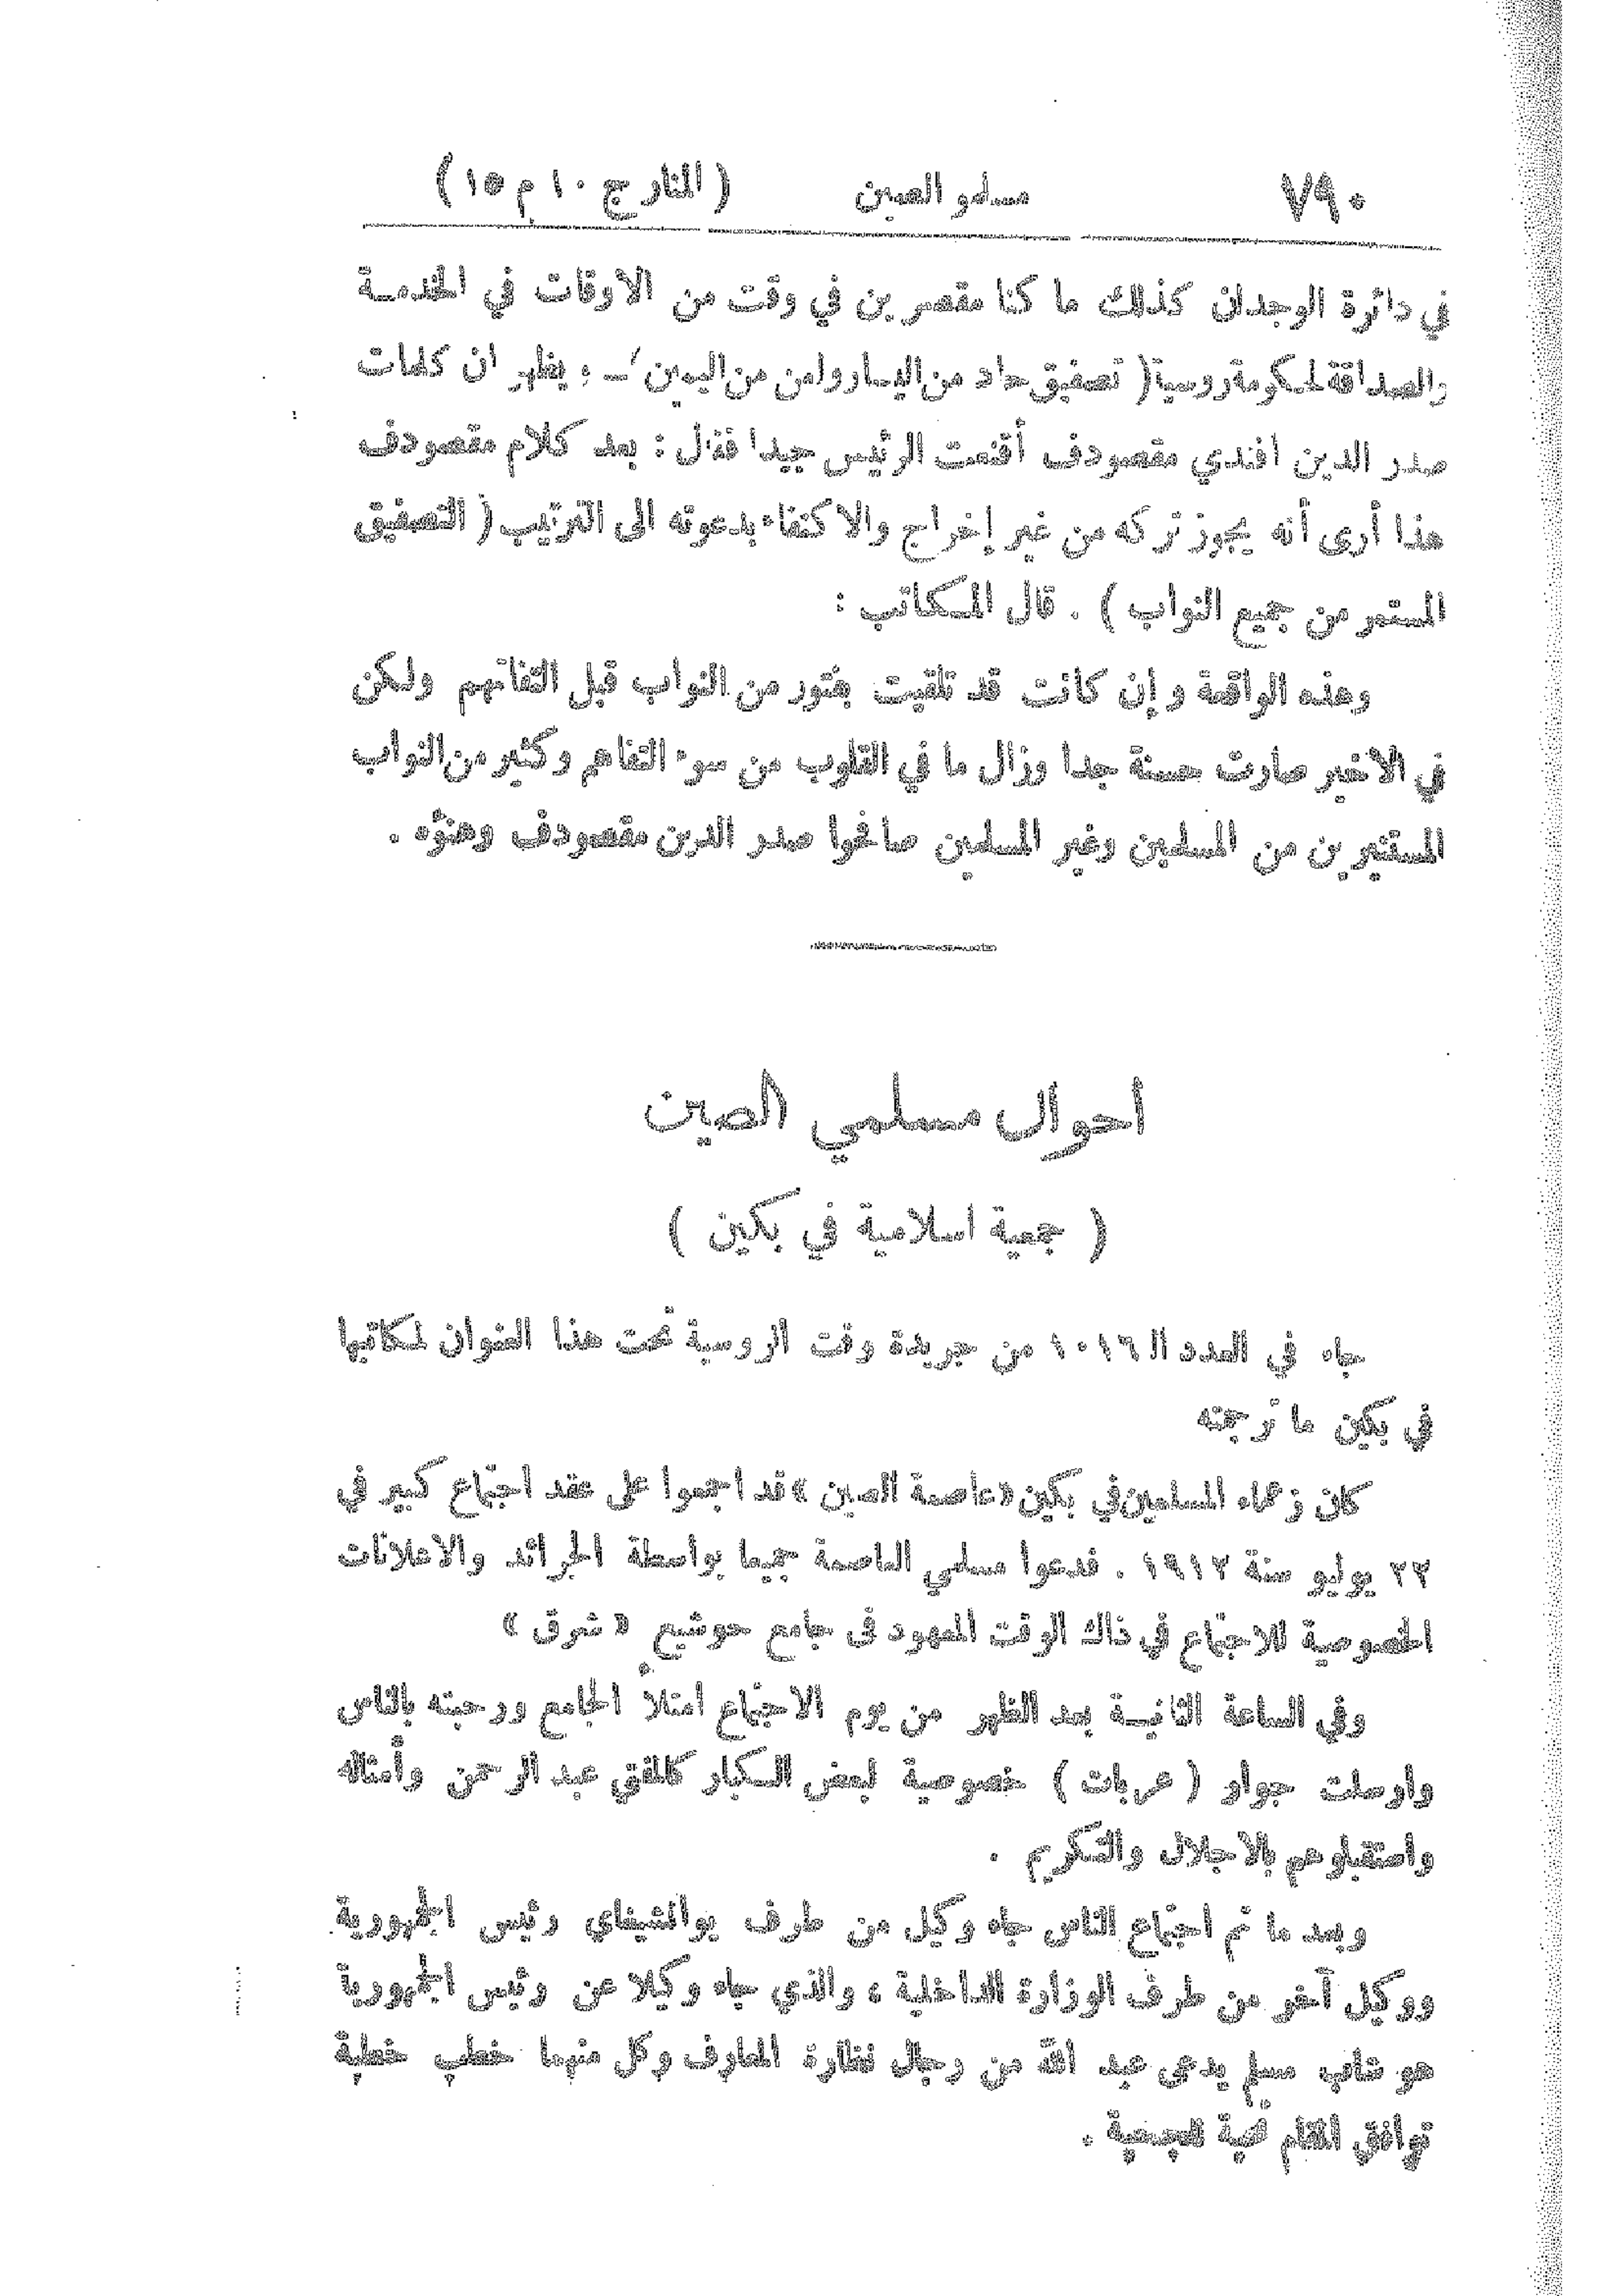 ٧٩٠ مسلمو الصين ( المنار ج ١٠ م ١٥ )
في دائرة الوجدان كذلك ما كنا مقصرين في وقت من الاوقات في الخدمة
والصداقة لحكومة روسية ( تصفيق حاد من اليسار ولمن من اليمين ) ـ ويظهر ان كلمات
صدر الدين افندي مقصودف أقنعت الرئيس جيدا فقال : بعد كلام مقصودف
هذا أرى أنه يجوز تركه من غير إخراج والاكتفاء بدعوته الى الترتيب ( التصفيق
المستمر من جميع النواب ) . قال المكاتب :
وهذه الواقعة وإن كانت قد تلقيت بفتور من النواب قبل التفاتهم ولكن
في الاخير صارت حسنة جدا وزال ما في القلوب من سوء التفاهم وكثير من النواب
المستنيرين من المسلمين وغير المسلمين صافحوا صدر الدين مقصودف وهنؤه .
أحوال مسلمي الصين
( جمعية اسلامية في بكين )
جاء في العدد الـ ١٠١٦ من جريدة وقت الروسية تحت هذا العنوان لمكاتبها
في بكين ما ترجمته
كان زعماء المسلمين في بكين «عاصمة الصين» قد اجمعوا على عقد اجتماع كبير في
٢٢ يوليو سنة ١٩١٢ . فدعوا مسلمي العاصمة جميعا بواسطة الجرائد والاعلانات
الخصوصية للاجتماع في ذاك الوقت المعهود فى جامع حوشيع « شرق »
وفي الساعة الثانية بعد الظهر من يوم الاجتماع امتلأ الجامع ورحبته بالناس
وارسلت جوار ( عربات ) خصوصية لبعض الكبار كالمفتي عبد الرحمن وأمثاله
واستقبلوهم بالاجلال والتكريم .
وبعد ما تم اجتماع الناس جاء وكيل من طرف يوانشيفاي رئيس الجمهورية
ووكيل آخر من طرف الوزارة الداخلية ، والذي جاء وكيلا عن رئيس الجمهورية
هو شاب مسلم يدعى عبد الله من رجال نظارة المعارف وكل منهما خطب خطبة
توافق المقام تحية للجمعية .